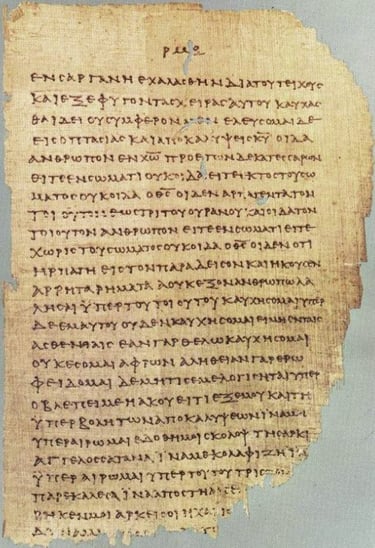 ΕΝΣΑΡΓΑΝΗΕΧΑΛΑΣΘΗΝΔΙΑΤΟΥΤΕΙΧΟΥΣ
ΚΑΙΕΞΕΦΥΓΟΝΤΑΣΧΕΙΡΑΣΑΥΤΟΥΚΑΥΧΑΣ
ΘΑΙΔΕΙΟΥΣΥΜΦΕΡΟΝΜΕΝΕΛΕΥΣΟΜΑΙΔΕ
ΕΙΣΟΠΤΑΣΙΑΣΚΑΙΑΠΟΚΑΛΥΨΕΙΣΚ̅Υ̅ΟΙΔΑ
ΑΝΘΡΩΠΟΝΕΝΧ̅Ω̅ΠΡΟΕΤΩΝΔΕΚΑΤΕΣΣΑΡΩΝ
ΕΙΤΕΕΝΣΩΜΑΤΙΟΥΚΟΙΔΑΕΙΤΕΕΚΤΟΣΤΟΥΣΩ
ΜΑΤΟΣΟΥΚΟΙΔΑΟΘ̅Σ̅ΟΙΔΕΝΑΡΠΑΓΕΝΤΑΤΟΝ
ΤΟΙΟΥΤΟΝΕΩΣΤΡΙΤΟΥΟΥΡΑΝΟΥΚΑΙΟΙΔΑΤΟΝ
ΤΟΙΟΥΤΟΝΑΝΘΡΩΠΟΝΕΙΤΕΕΝΣΩΜΑΤΙΕΙΤΕ
ΧΩΡΙΣΤΟΥΣΩΜΑΤΟΣΟΥΚΟΙΔΑΟΘ̅Σ̅ΟΙΔΕΝΟΤΙ
ΗΡΠΑΓΗΕΙΣΤΟΝΠΑΡΑΔΕΙΣΟΝΚΑΙΗΚΟΥΣΕΝ
ΑΡΡΗΤΑΡΗΜΑΤΑΑΟΥΚΕΞΟΝΑΝΘΡΩΠΩΛΑ
ΛΗΣΑΙΫΠΕΡΤΟΥΤΟΙΟΥΤΟΥΚΑΥΧΗΣΟΜΑΙΫΠΕΡ
ΔΕΕΜΑΥΤΟΥΟΥΔΕΝΚΑΥΧΗΣΟΜΑΙΕΙΜΗΕΝΤΑΙΣ
ΑΣΘΕΝΕΙΑΙΣΕΑΝΓΑΡΘΕΛΩΚΑΥΧΗΣΟΜΑΙ
ΟΥΚΕΣΟΜΑΙΑΦΡΩΝΑΛΗΘΕΙΑΝΓΑΡΕΡΩ
ΦΕΙΔΟΜΑΙΔΕΜΗΤΙΣΕΜΕΛΟΓΙΣΗΤΑΙΫΠΕΡ
ΟΒΛΕΠΕΙΜΕΗΑΚΟΥΕΙΤΙΕΞΕΜΟΥΚΑΙΤΗ
ΫΠΕΡΒΟΛΗΤΩΝΑΠΟΚΑΛΥΨΕΩΝΪΝΑΜΗ
ΥΠΕΡΑΙΡΩΜΑΙΕΔΟΘΗΜΟΙΣΚΟΛΟΨΤΗΣΑΡΚΙ
ΑΓΓΕΛΟΣΣΑΤΑΝΑΪΝΑΜΕΚΟΛΑΦΙΖΗ
ΫΠΕΡΑΙΡΩΜΑΙΫΠΕΡΤΟΥΤΟΥΤΡΙΣ
ΠΑΡΕΚΑΛΕΣΑΪΝΑΑΠΟΣΤΗ
ΡΗΚΕΝΜΟΙΑΡΚΕΙΣΟΙΗΧΑΡΙΣ